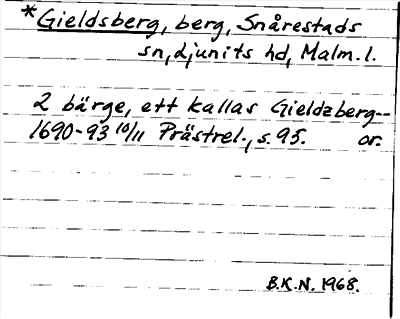 *Gieldsberg, berg, Snårestads
sn, Ljunits hd, Malm.l.
2 bärge, ett kallas Gieldzberg--
1690-93 10/11 Prästrel., s. 95. or.
B.K.N. 1968.